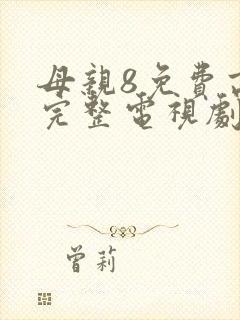 母親8免費
完整電視劇
曾莉